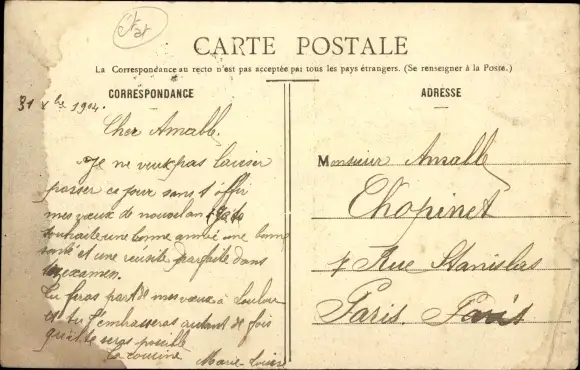 CARTE POSTALE
La Correspondance au recto n'est pas acceptée par tous les pays étrangers. (Se renseigner à la Poste.)
CORRESPONDANCE
31 Xbre 1904.
Cher Amable.
Je ne veux pas laisser
passer ce jour sans t'offrir
mes vœux de nouvel an. Je te
souhaite une bonne année une bonne
santé et une réussite parfaite dans
ton examen.
Tu feras part de mes vœux à Loulou
et tu l'embrasseras autant de fois
qu'il te sera possible
Ta cousine
Marie-Louise
ADRESSE
Monsieur Amable
Chopinet
7 Rue Stanislas
Paris. Paris